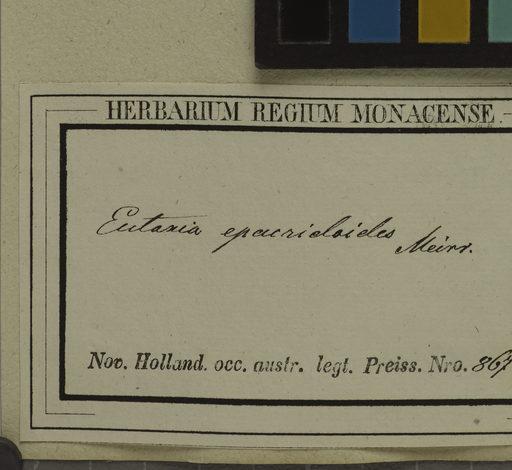 HERBARIUM REGIUM MONACENSE.
Eutaxia epacridoides Meisn.
Nov. Holland. occ. austr. legt. Preiss. Nro. 867